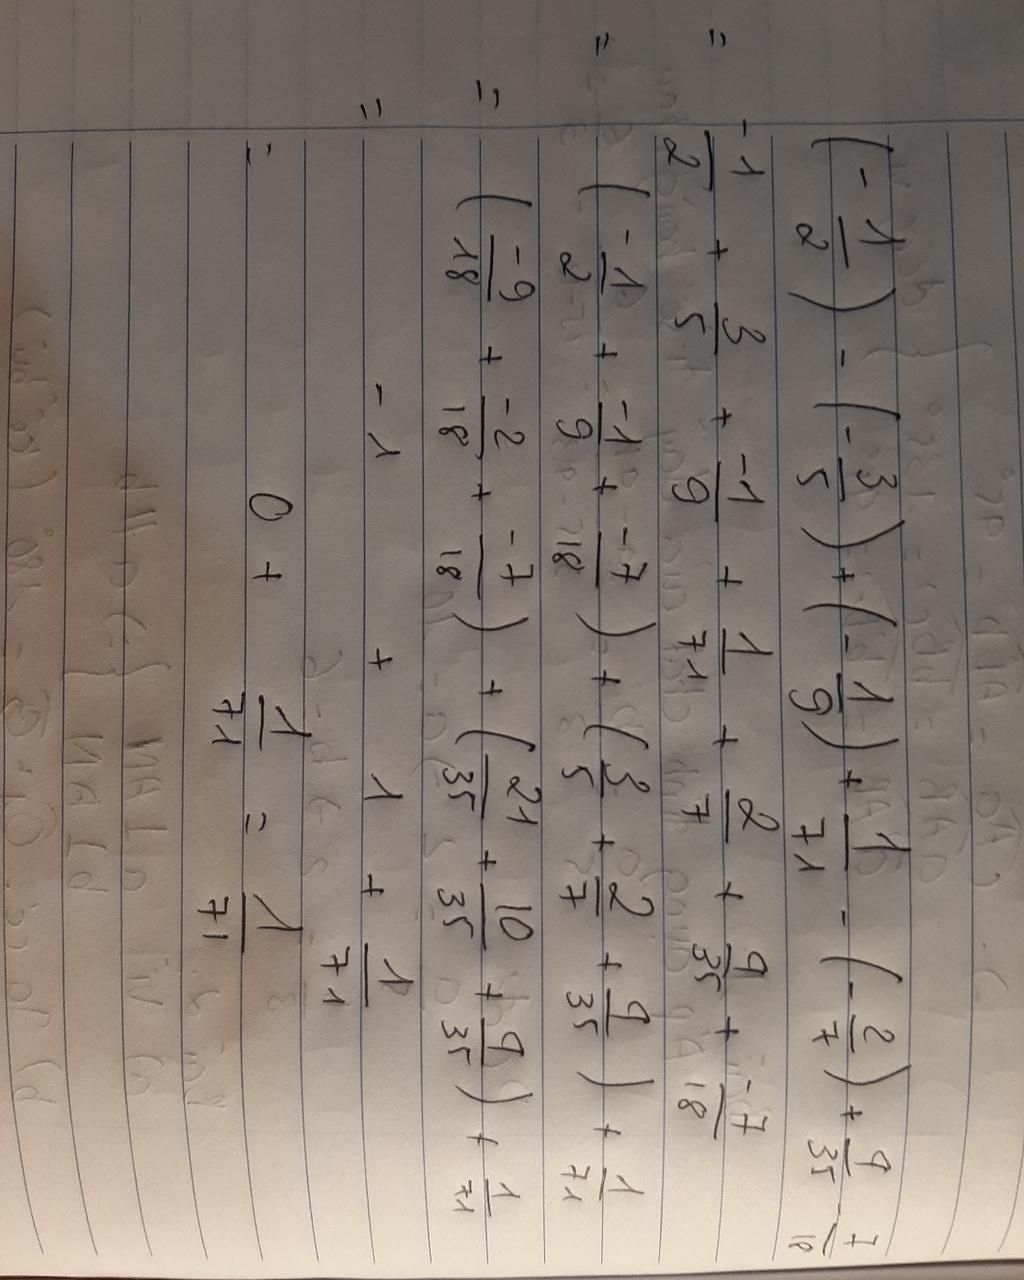 (-1/2) - (-3/5) + (-1/9) + 1/71 - (-2/7) + 4/35 - 7/18
= -1/2 + 3/5 + -1/9 + 1/71 + 2/7 + 4/35 + -7/18
= (-1/2 + -1/9 + -7/18) + (3/5 + 2/7 + 4/35) + 1/71
= (-9/18 + -2/18 + -7/18) + (21/35 + 10/35 + 4/35) + 1/71
= -1 + 1 + 1/71
= 0 + 1/71 = 1/71